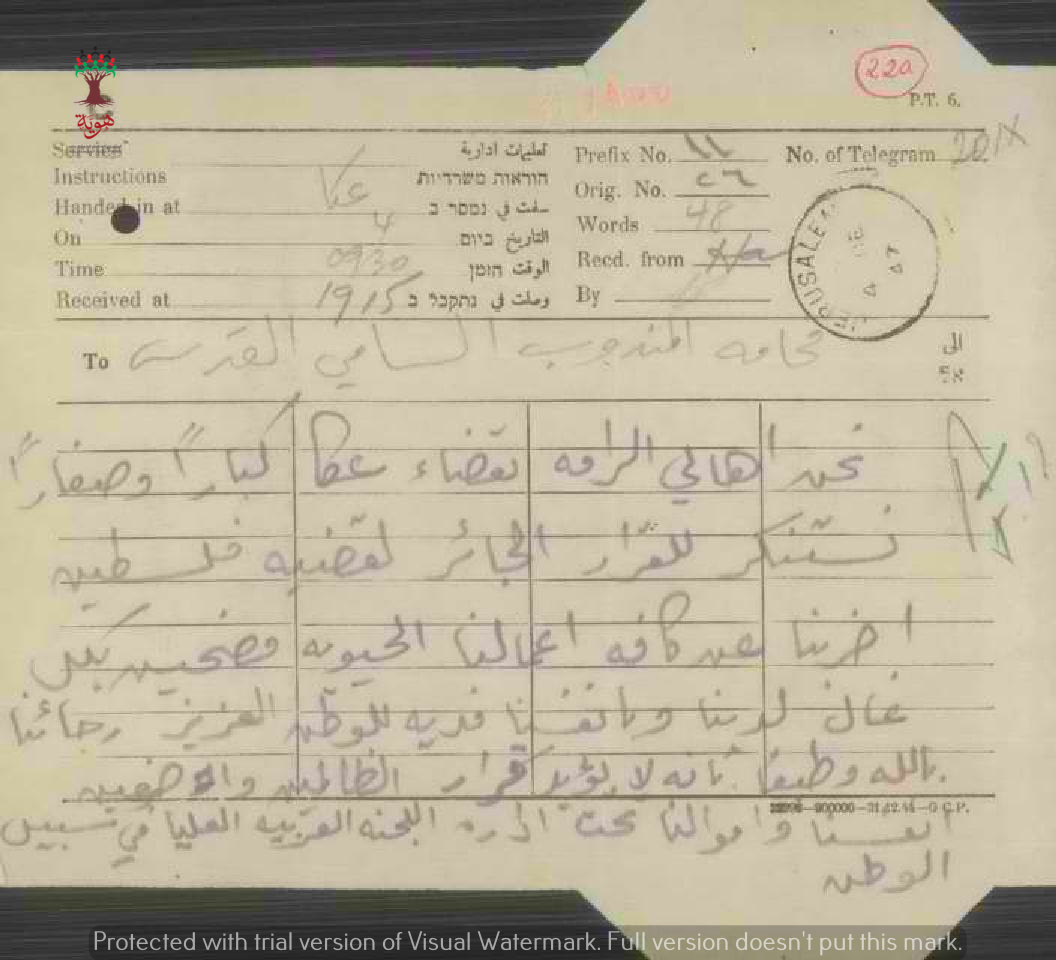 22a
P.T. 6.
هوية
Service تعليمات ادارية Prefix No. 11 No. of Telegram 201/X
Instructions הוראות משרדיות Orig. No. ٢٦
Handed in at عكا سلمت في נמסר ב Words 48
On 4 التاريخ ביום
Time 0930 الوقت הזמן Recd. from
Received at 1915 وصلت في נתקבל ב By
JERUSALEM
To فخامه المندوب السامي القدس الى
אל
نحن اهالي الرامه بقضاء عكا كباراً وصغاراً
نستنكر للقرار الجائر لقضيه فلسطين
اضربنا عن كافه اعمالنا الحيويه مضحين بكل
غال لدينا وبانفسنا فديه للوطن العزيز رجائنا
بالله وطيدا بانه لا يؤيد قرار الظالمين واضعين
انفسنا واموالنا تحت اداره اللجنه العربيه العليا في سبيل
الوطن
Protected with trial version of Visual Watermark. Full version doesn't put this mark.